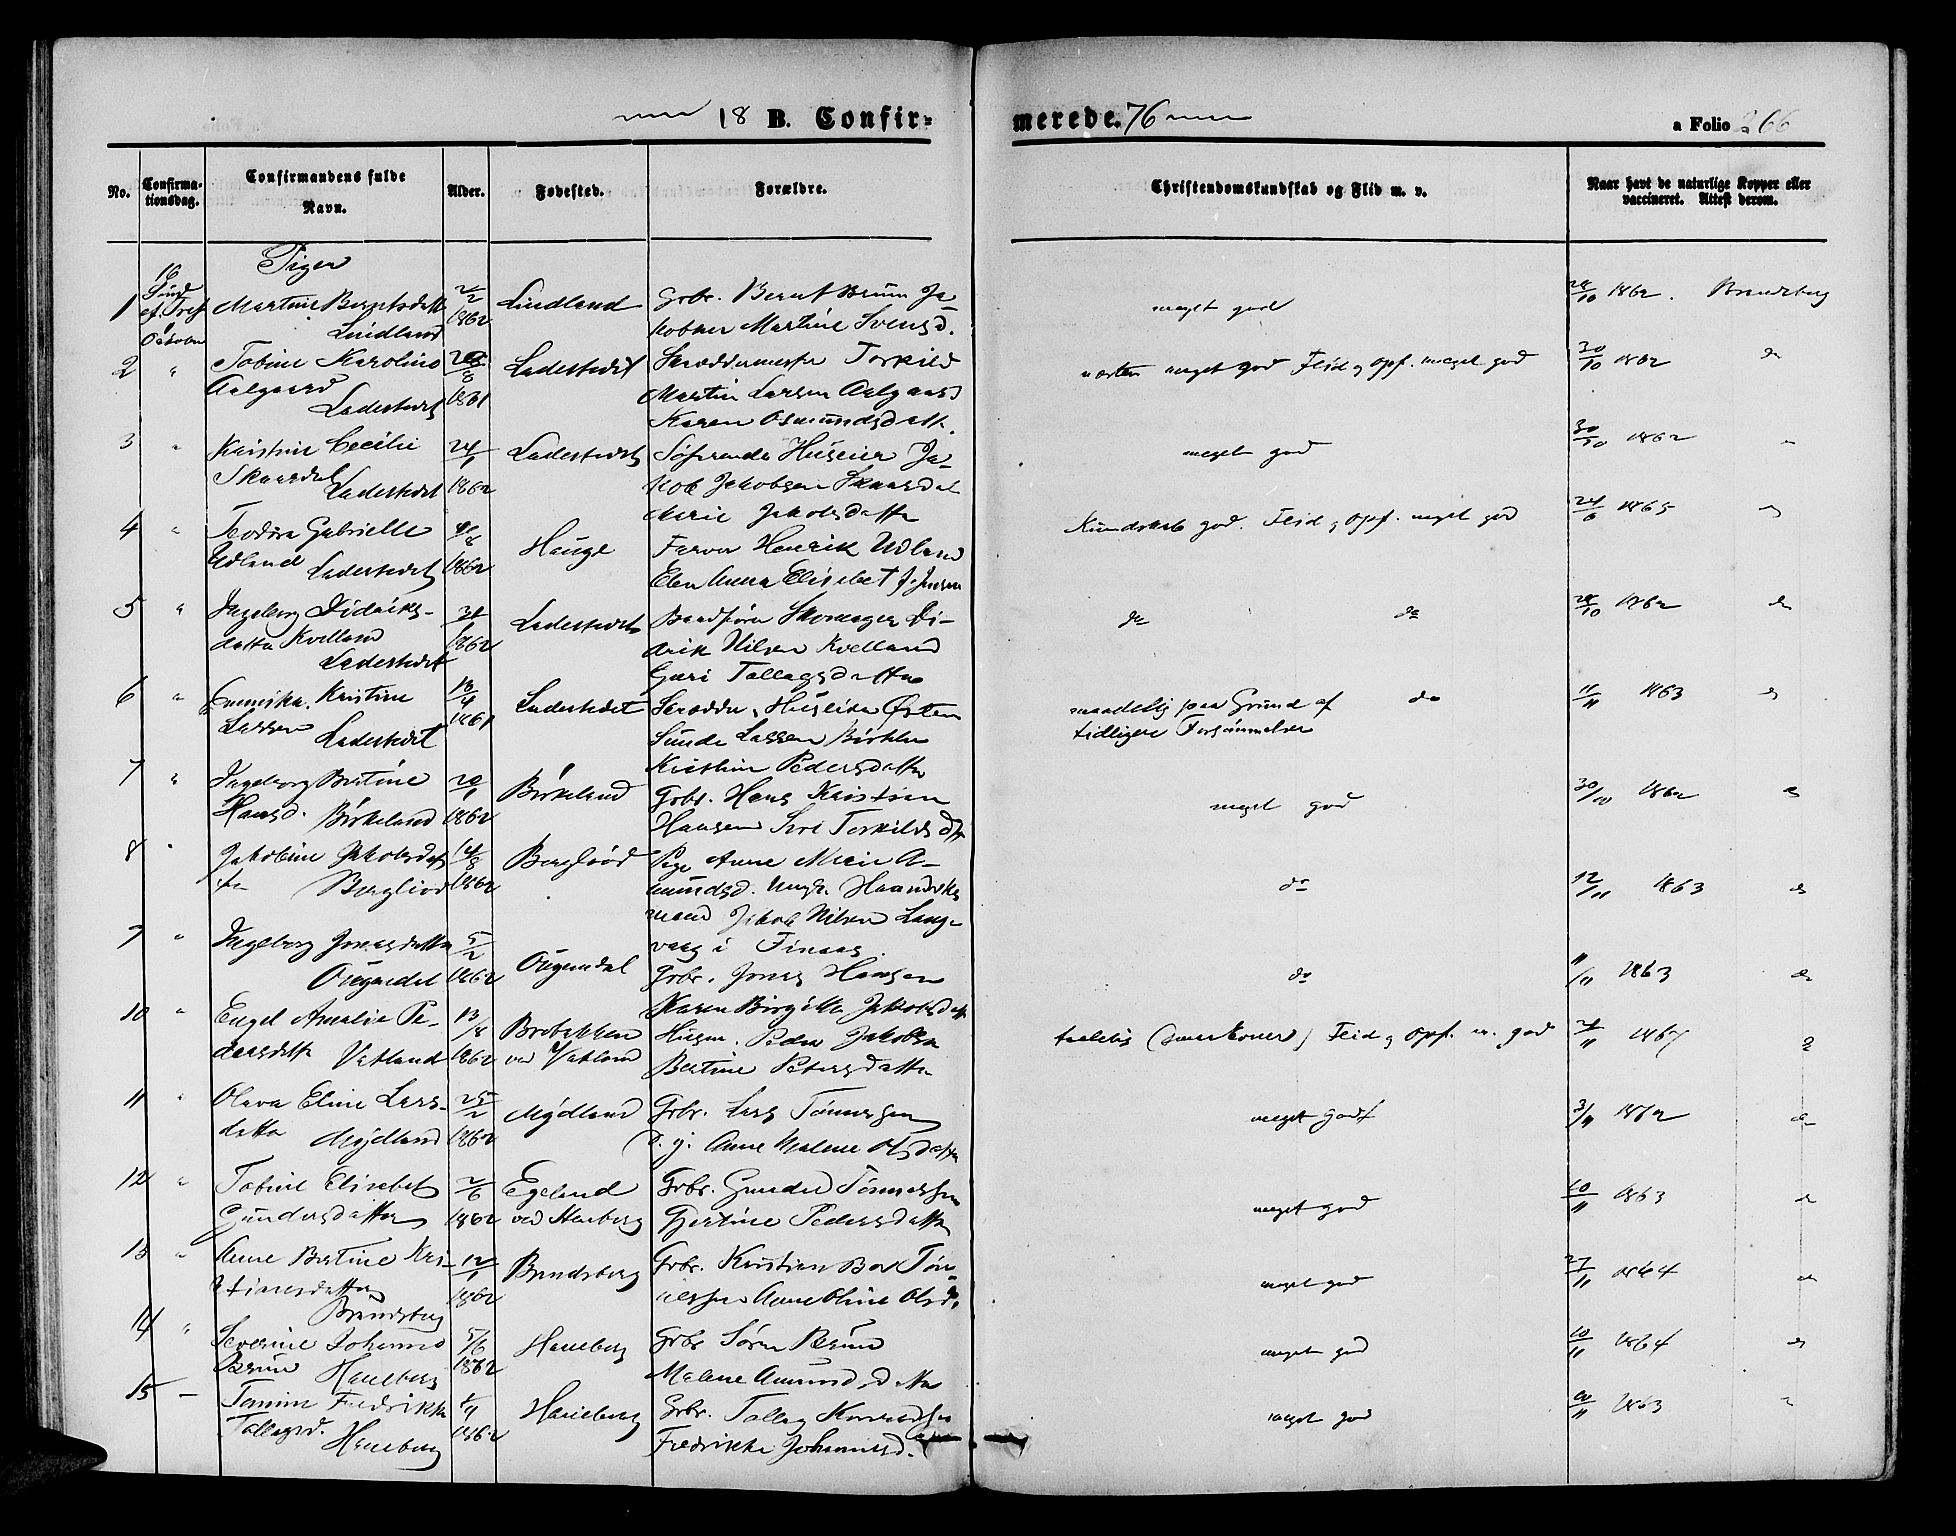 18 B. Confir=
merede. 76
a Folio 266
No.
Confirma-
tionsdag.
Confirmandens fulde
Navn.
Alder.
Fødested.
Forældre.
Christendomskundskab og Flid m. v.
Naar havt de naturlige Kopper eller
vaccineret. Attest derom.
Piger
1
16
Martine Berntsdatt
Lindland
2/2
1862
Lindland
Grbr. Bernt Brun Ja-
kobsen Martine Svensd.
meget god
28/10 1862. Brandsberg
2 "
Tobine Karoline
Aalgaard
Ladestedet
1861
Ladestedet
Skræddermester Torkild
Martin Larsen Aalgaard
Karen Osmundsdatt.
næsten meget god Flid og Opf. meget god
30/10 1862 do
3 "
Kristine Cecilie
Skaardal
Ladestedet
24/1
1862
Ladestedet
Søfarende Huseier Ja-
kob Jakobsen Skaardal
Marie Jakobsdatter
meget god
30/10 1862 "
4 "
Teodora Gabrielle
Udland
Ladestedet
4/8
1862
Hauge
Farver Henrik Udland
Elen Anna Elisabet J. Jensen
Kundskab god. Flid og Opf. meget god
24/6 1865
5 "
Ingeborg Didriks-
datter Kvelland
Ladestedet
31/1
1862
Ladestedet
Baadfører Skomager Di-
drik Nilsen Kvelland
Guri Tallagsdatter
do do
28/10 1862 do
6 "
Kristine
Lassen
Ladestedet
13/4
1861
Ladestedet
Skrædder, Husleier Østen
Sunde Lassen Birkeland
Kristine Pedersdatter
maadelig paa Grund af
tidligere Forsømmelser
do
11/11 1863 do
7 "
Ingeborg Bertine
Hansd. Birkeland
20/1
1862
Birkeland
Grbr. Hans Kristian
Hansen Siri Torkildsdtr
meget god
30/10 1862 do
8 "
Jakobine Jakobsdat-
ter Bergliod
14/8
1862
Bergliod
Pige Anne Marie A-
mundsd. Ungk. Haandverks
mand Jakob Nilsen Lang-
vaag i Finaas.
do
12/11 1863 do
9 "
Ingeborg Jonasdatter
Ougendal
5/2
1862
Ougendal
Grbr. Jonas Hansen
Karen Birgitte Jakobsdatt
do
11/11 1863 do
10 "
Engel Amalie Pe-
dersdatter Vatland
13/8
1862
Brobakken
ved Vatland
Husm. Peder Jakobsen
Bertine Petersdatter
taalelig Flid og Opf. m. god
11 "
Olava Eline Lars-
datter
Mydland
25/2
1862
Mydland
Grbr. Lars Tønnessen
Anne Malene Olsdatter
meget godt
3/11 1862 do
12 "
Tobine Elisabet
Gundersdatter
2/6
1862
Egeland
ved Haneberg
Grbr. Gunder Tønnessen
Gjertine Pedersdatter
meget god
10/11 1863 do
13 "
Anne Bertine Kri-
stinesdatter
Brandsberg
12/1
1862
Brandsberg
Grbr. Kristian Boe Tøn-
nessen Anne Oline Olsd.
meget god
27/11 1864 do
14 "
Severine Johanne
Brun Haneberg
5/6
1862
Haneberg
Grbr Søren Brun
Malene Amundsdatter
meget god
10/11 1864 do
15 —
Tomine Fredrikke
Tallagsd.
Haneberg
1862
Haneberg
Grbr. Tallag Konradsen
Fredrikke Johannesd.
meget god
10/11 1863 "